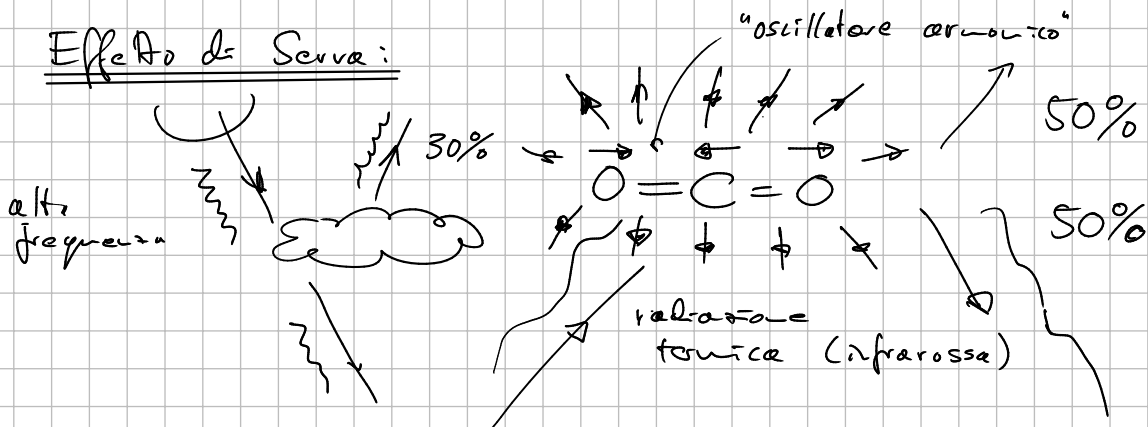 Effetto di Serra:
"oscillatore armonico"
30%
50%
O=C=O
alta
frequenza
50%
radiazione
termica (infrarossa)